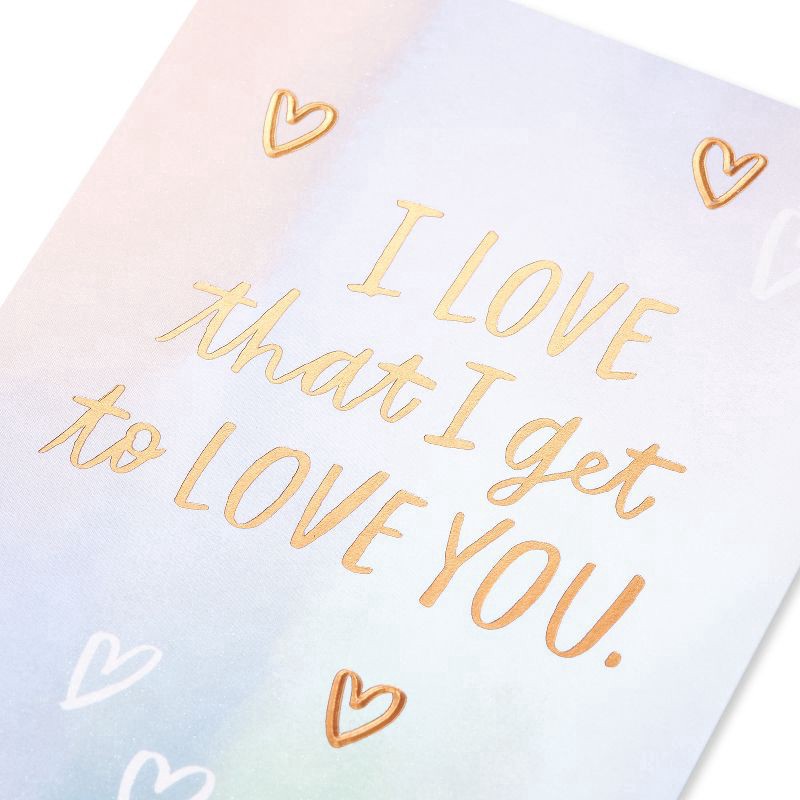 I LOVE
that I get
to LOVE YOU.